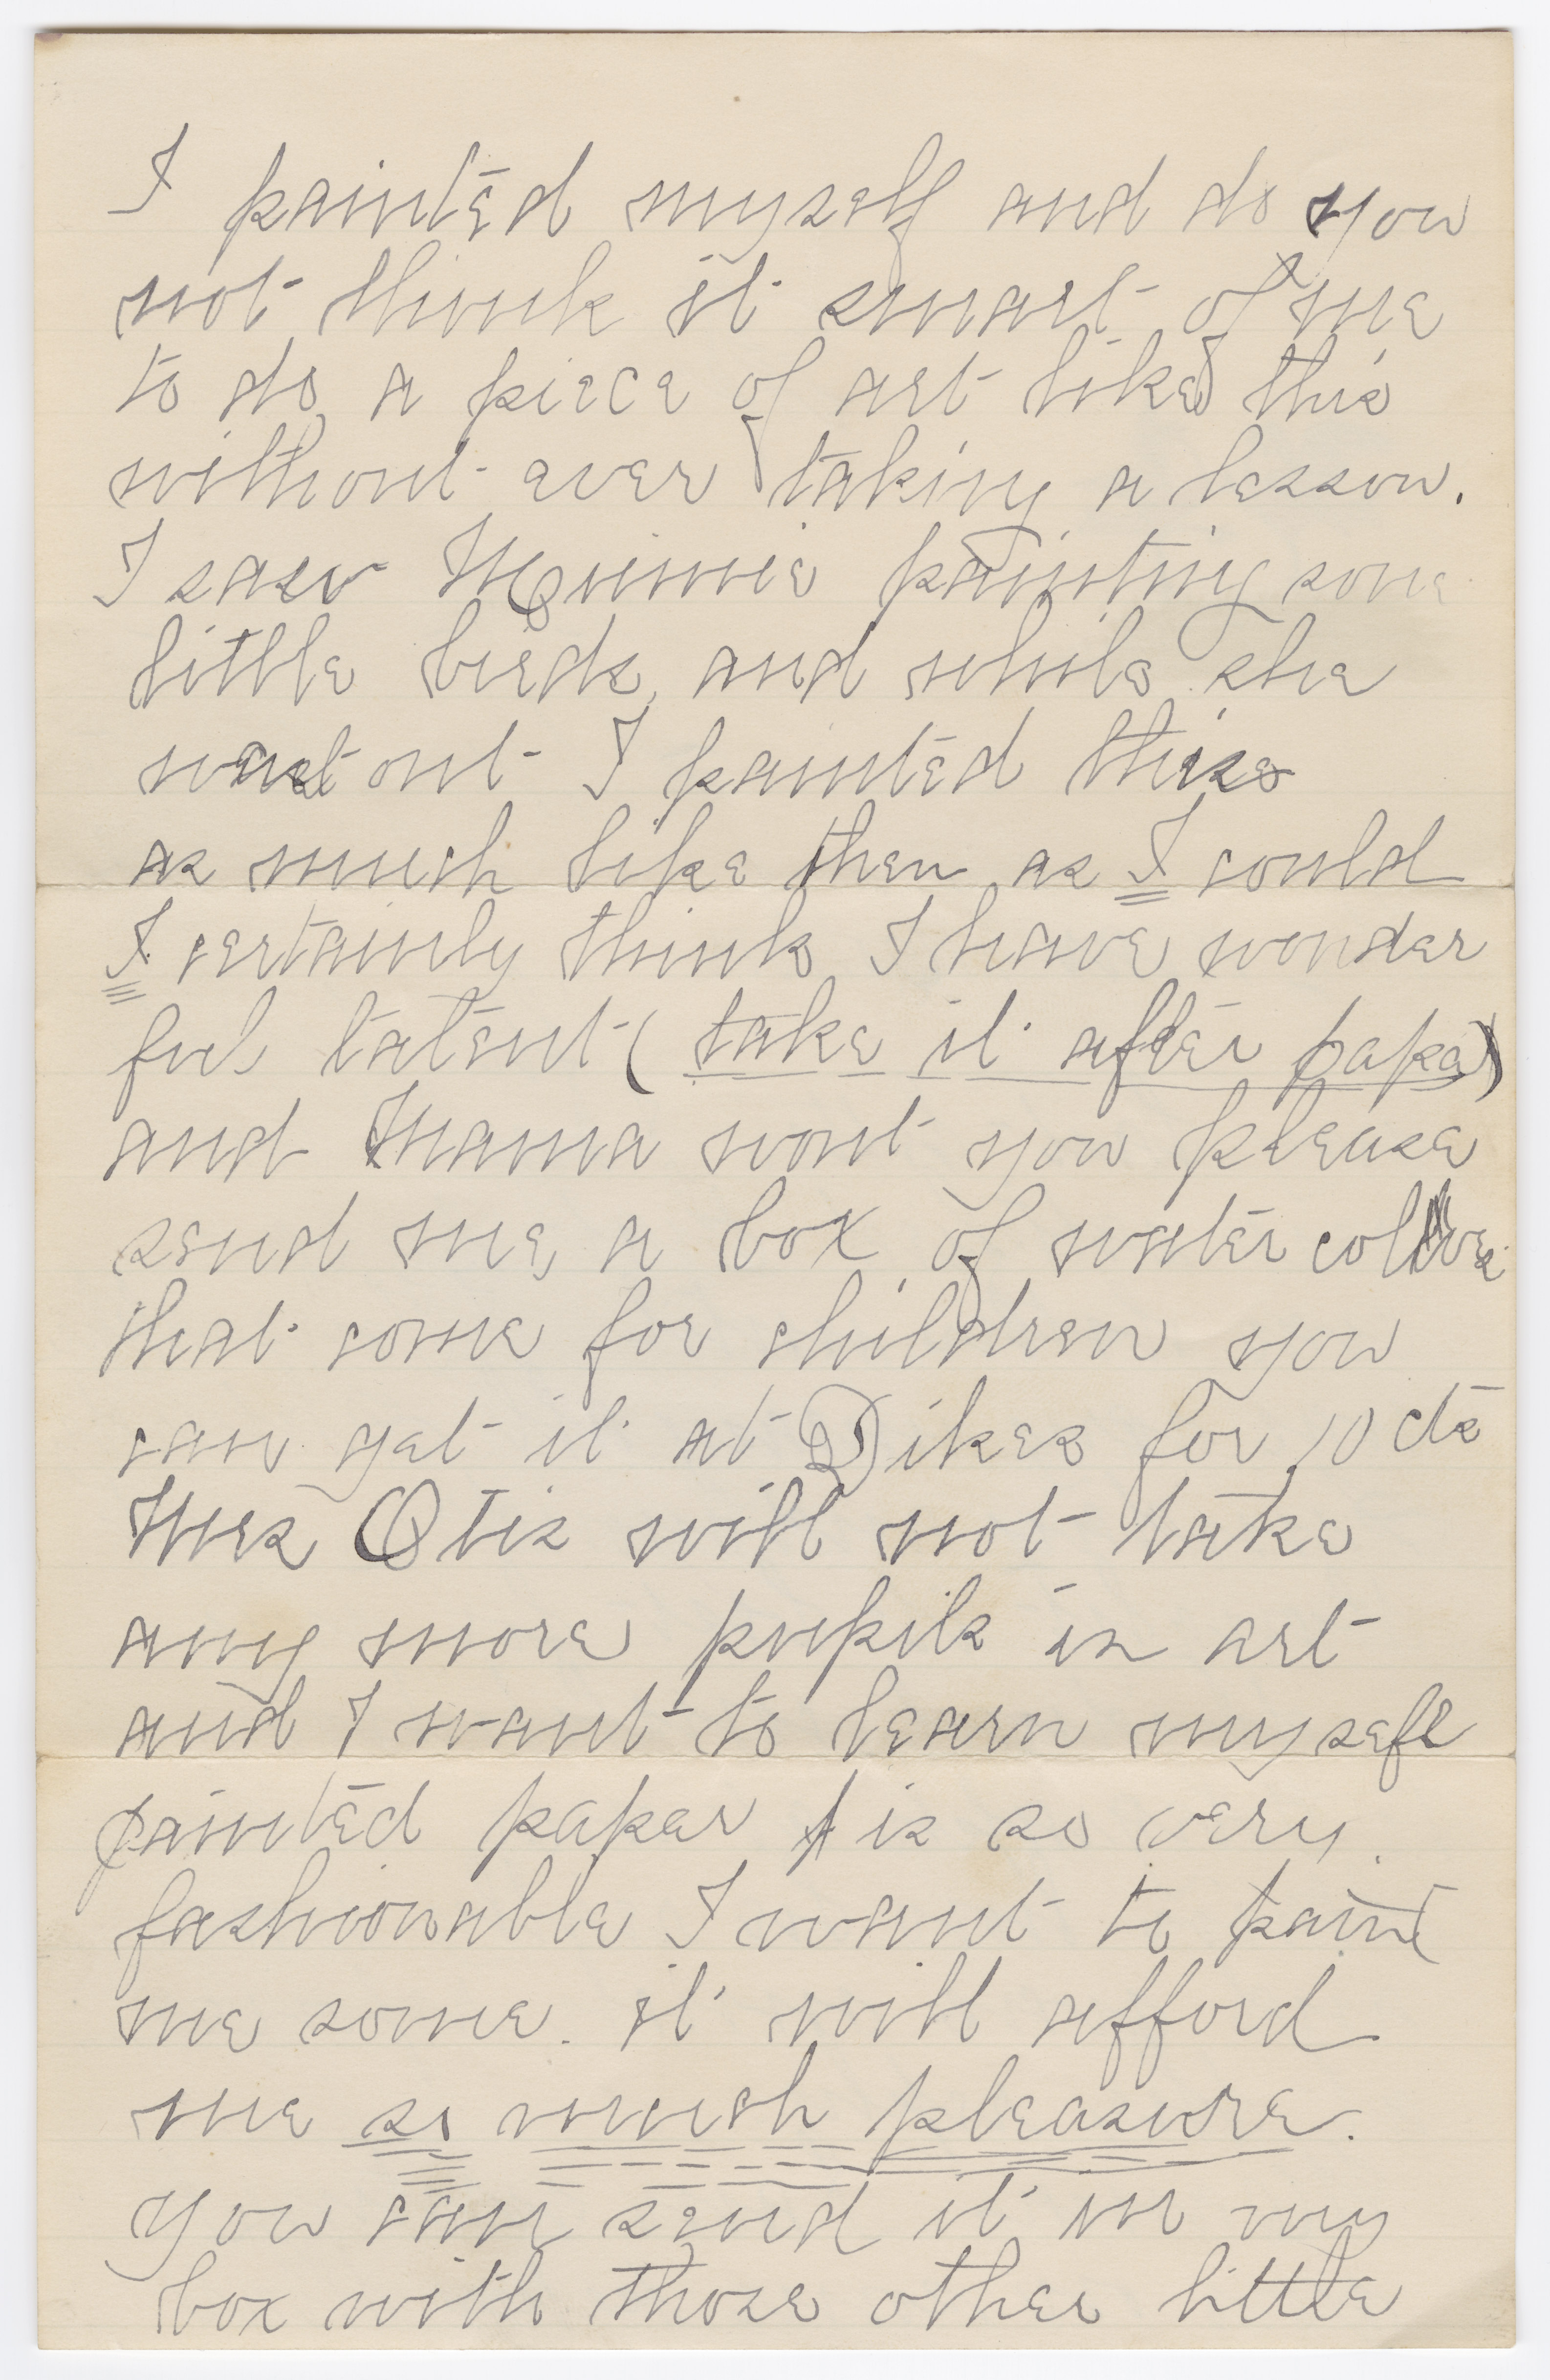 I painted myself and do you
not think it smart of me
to do a piece of art like this
without ever taking a lesson.
I saw Minnie painting some
little birds, and while she
went out I painted these
as much like them as I could
I certainly think I have wonder
ful talent (take it after papa)
and Mama wont you please
send me a box of water colors
that come for children you
can get it at Dikes for 10 cts
Mrs Otis will not take
any more pupils in art
and I want to learn myself
painted paper is so very
fashionable I want to paint
me some. it will afford
me so much pleasure.
you can send it in my
box with those other little